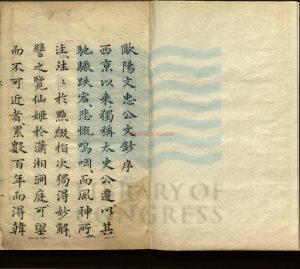 歐陽文忠公文鈔序
西京以來獨稱太史公遷以其
馳驟跌宕悲慨嗚咽而風神所
注往往於點綴指次獨得妙解
譬之覽仙姬於瀟湘洞庭可望
而不可近者累數百年而得韓
LIBRARY OF
CONGRESS